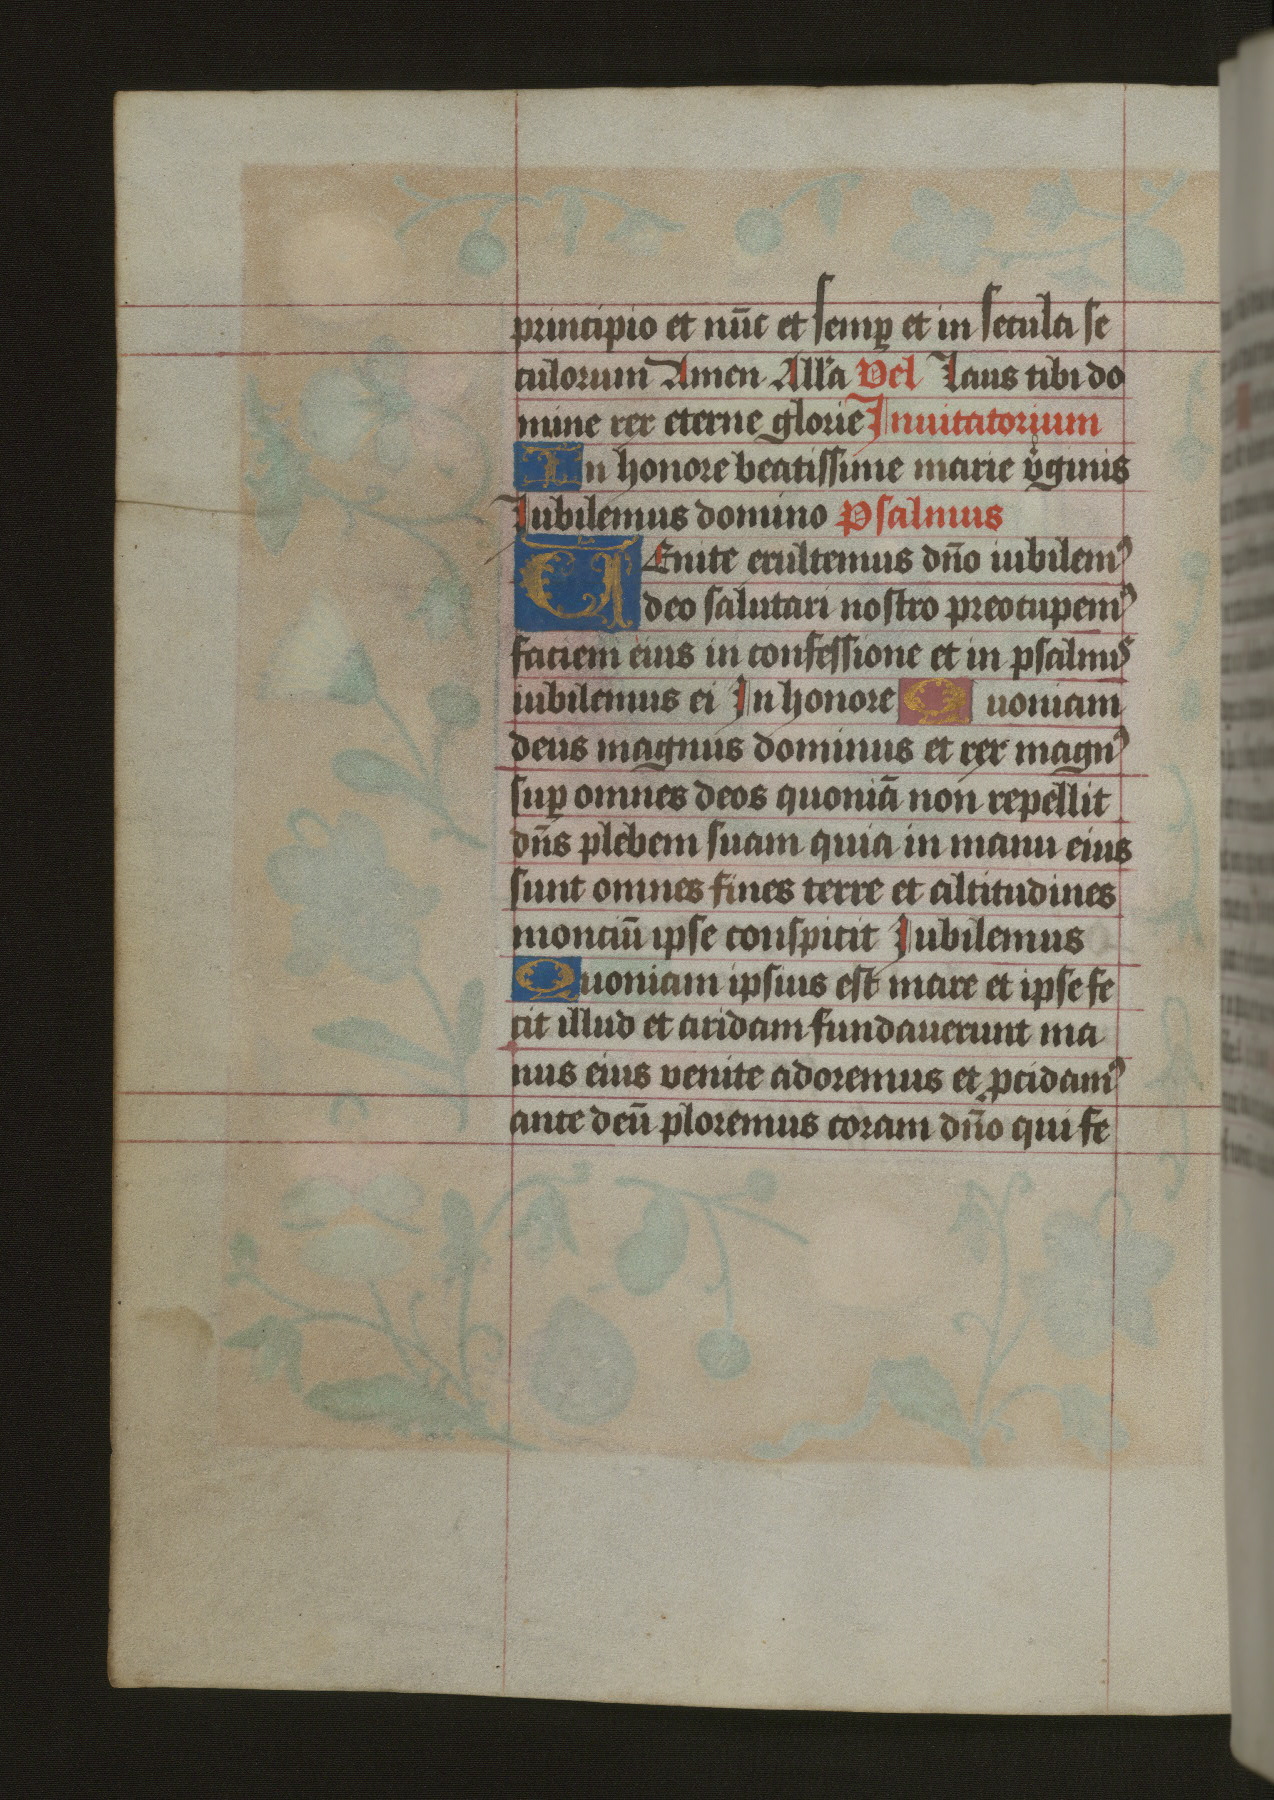 principio et nūc et semꝑ et in secula se
culorum Amen All'a Vel Laus tibi do
mine rex eterne glorie Inuitatorium
In honore beatissime marie v̊ginis
Iubilemus domino Psalmus
VEnite exultemus dn̄o iubilem᷒
deo salutari nostro preocupem᷒
faciem eius in confessione et in psalmis
iubilemus ei In honore Quoniam
deus magnus dominus et rex magn᷒
suꝑ omnes deos quoniā non repellit
dn̄s plebem suam quia in manu eius
sunt omnes fines terre et altitudines
monciū ipse conspicit Iubilemus
Quoniam ipsius est mare et ipse fe
cit illud et aridam fundauerunt ma
nus eius venite adoremus et ꝓcidam᷒
ante deū ploremus coram dn̄o qui fe